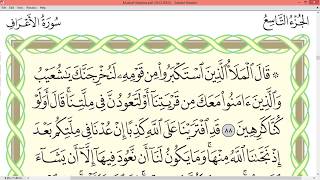 الجُزْءُ التَّاسِعُ
سُورَةُ الأَعْرَافِ
۞ قَالَ ٱلْمَلَأُ ٱلَّذِينَ ٱسْتَكْبَرُوا۟ مِن قَوْمِهِۦ لَنُخْرِجَنَّكَ يَـٰشُعَيْبُ
وَٱلَّذِينَ ءَامَنُوا۟ مَعَكَ مِن قَرْيَتِنَآ أَوْ لَتَعُودُنَّ فِى مِلَّتِنَا ۚ قَالَ أَوَلَوْ
كُنَّا كَـٰرِهِينَ ٨٨ قَدِ ٱفْتَرَيْنَا عَلَى ٱللَّهِ كَذِبًا إِنْ عُدْنَا فِى مِلَّتِكُم بَعْدَ
إِذْ نَجَّىٰنَا ٱللَّهُ مِنْهَا ۚ وَمَا يَكُونُ لَنَآ أَن نَّعُودَ فِيهَآ إِلَّآ أَن يَشَآءَ